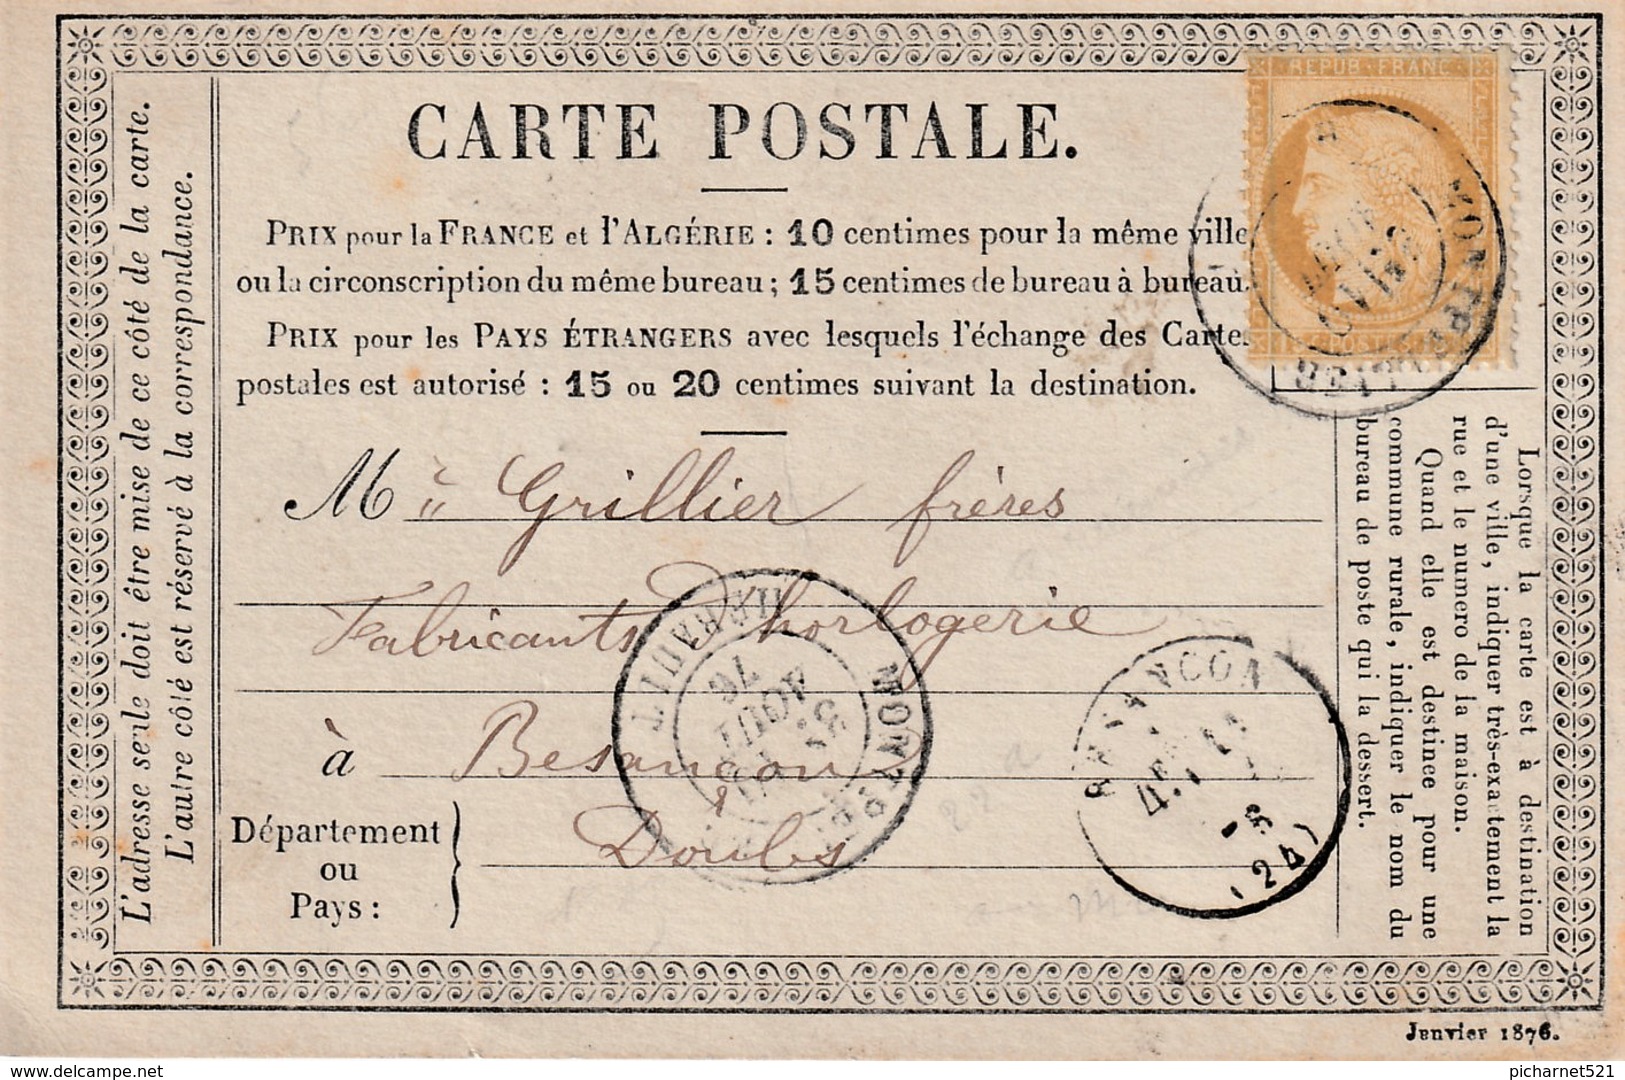 CARTE POSTALE.
PRIX pour la FRANCE et l'ALGÉRIE : 10 centimes pour la même ville
ou la circonscription du même bureau ; 15 centimes de bureau à bureau.
PRIX pour les PAYS ÉTRANGERS avec lesquels l'échange des Cartes
postales est autorisé : 15 ou 20 centimes suivant la destination.
REPUB · FRANC
POSTES
MONTPELLIER
AOUT
M rs Grillier frères
Fabricants d'horlogerie
à Besançon
Département
ou
Pays :
Doubs
MONTPELLIER
HERAULT
AOUT
76
BESANÇON
(24)
L'adresse seule doit être mise de ce côté de la carte.
L'autre côté est réservé à la correspondance.
Lorsque la carte est à destination
d'une ville, indiquer très-exactement la
rue et le numero de la maison.
Quand elle est destinee pour une
commune rurale, indiquer le nom du
bureau de poste qui la dessert.
Janvier 1876.
delcampe.net
picharnet521